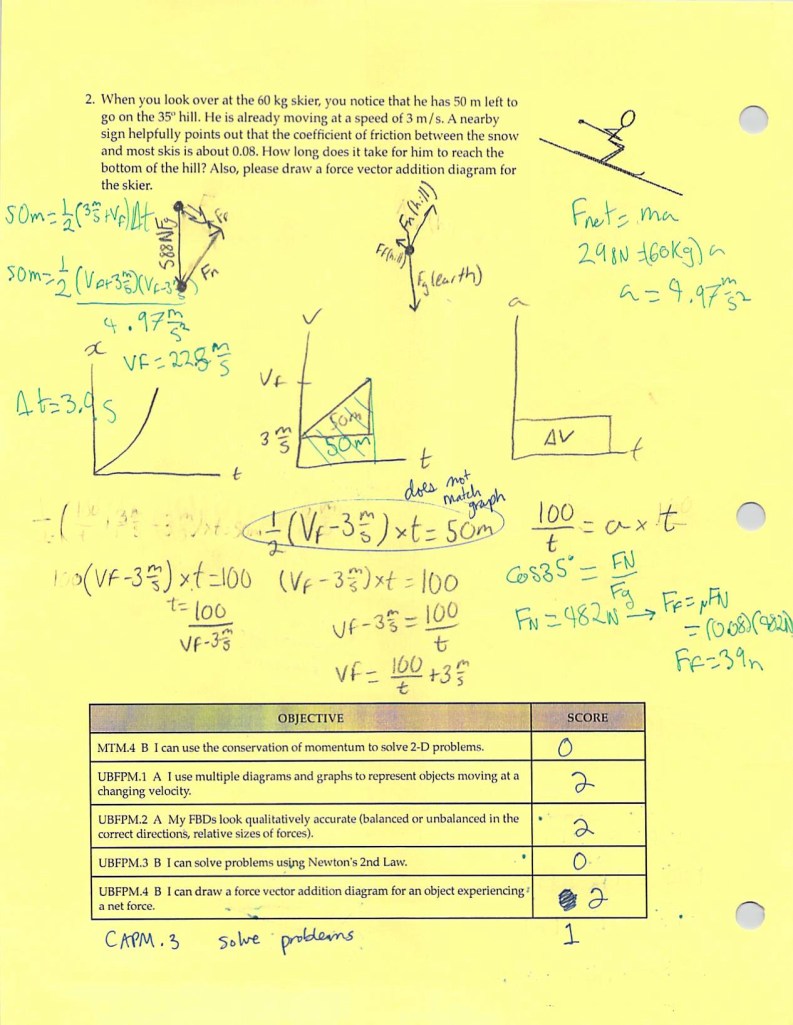 2. When you look over at the 60 kg skier, you notice that he has 50 m left to
go on the 35° hill. He is already moving at a speed of 3 m/s. A nearby
sign helpfully points out that the coefficient of friction between the snow
and most skis is about 0.08. How long does it take for him to reach the
bottom of the hill? Also, please draw a force vector addition diagram for
the skier.
50m=½(3 m/s+VF)Δt
50m=½(VF+3 m/s)(VF-3 m/s)
4.97 m/s²
VF=22.8 m/s
Δt=3.9s
588N Fg
Ff
Fn
Fn(hill)
Ff(hill)
Fg(earth)
Fnet=ma
298N=(60kg)a
a=4.97 m/s²
x
t
v
VF
3 m/s
50m
50m
t
a
ΔV
t
does not
match
graph
½(VF-3 m/s)×t=50m
100/t=a×t
(VF-3 m/s)×t=100
t=100/VF-3 m/s
(VF-3 m/s)×t=100
VF-3 m/s=100/t
VF=100/t+3 m/s
cos35°=FN/Fg
FN=482N→FF=μFN
=(0.08)(482N)
FF=39n
OBJECTIVE SCORE
MTM.4 B I can use the conservation of momentum to solve 2-D problems. 0
UBFPM.1 A I use multiple diagrams and graphs to represent objects moving at a
changing velocity. 2
UBFPM.2 A My FBDs look qualitatively accurate (balanced or unbalanced in the
correct directions, relative sizes of forces). 2
UBFPM.3 B I can solve problems using Newton's 2nd Law. 0
UBFPM.4 B I can draw a force vector addition diagram for an object experiencing
a net force. 2
CAPM.3 solve problems 1